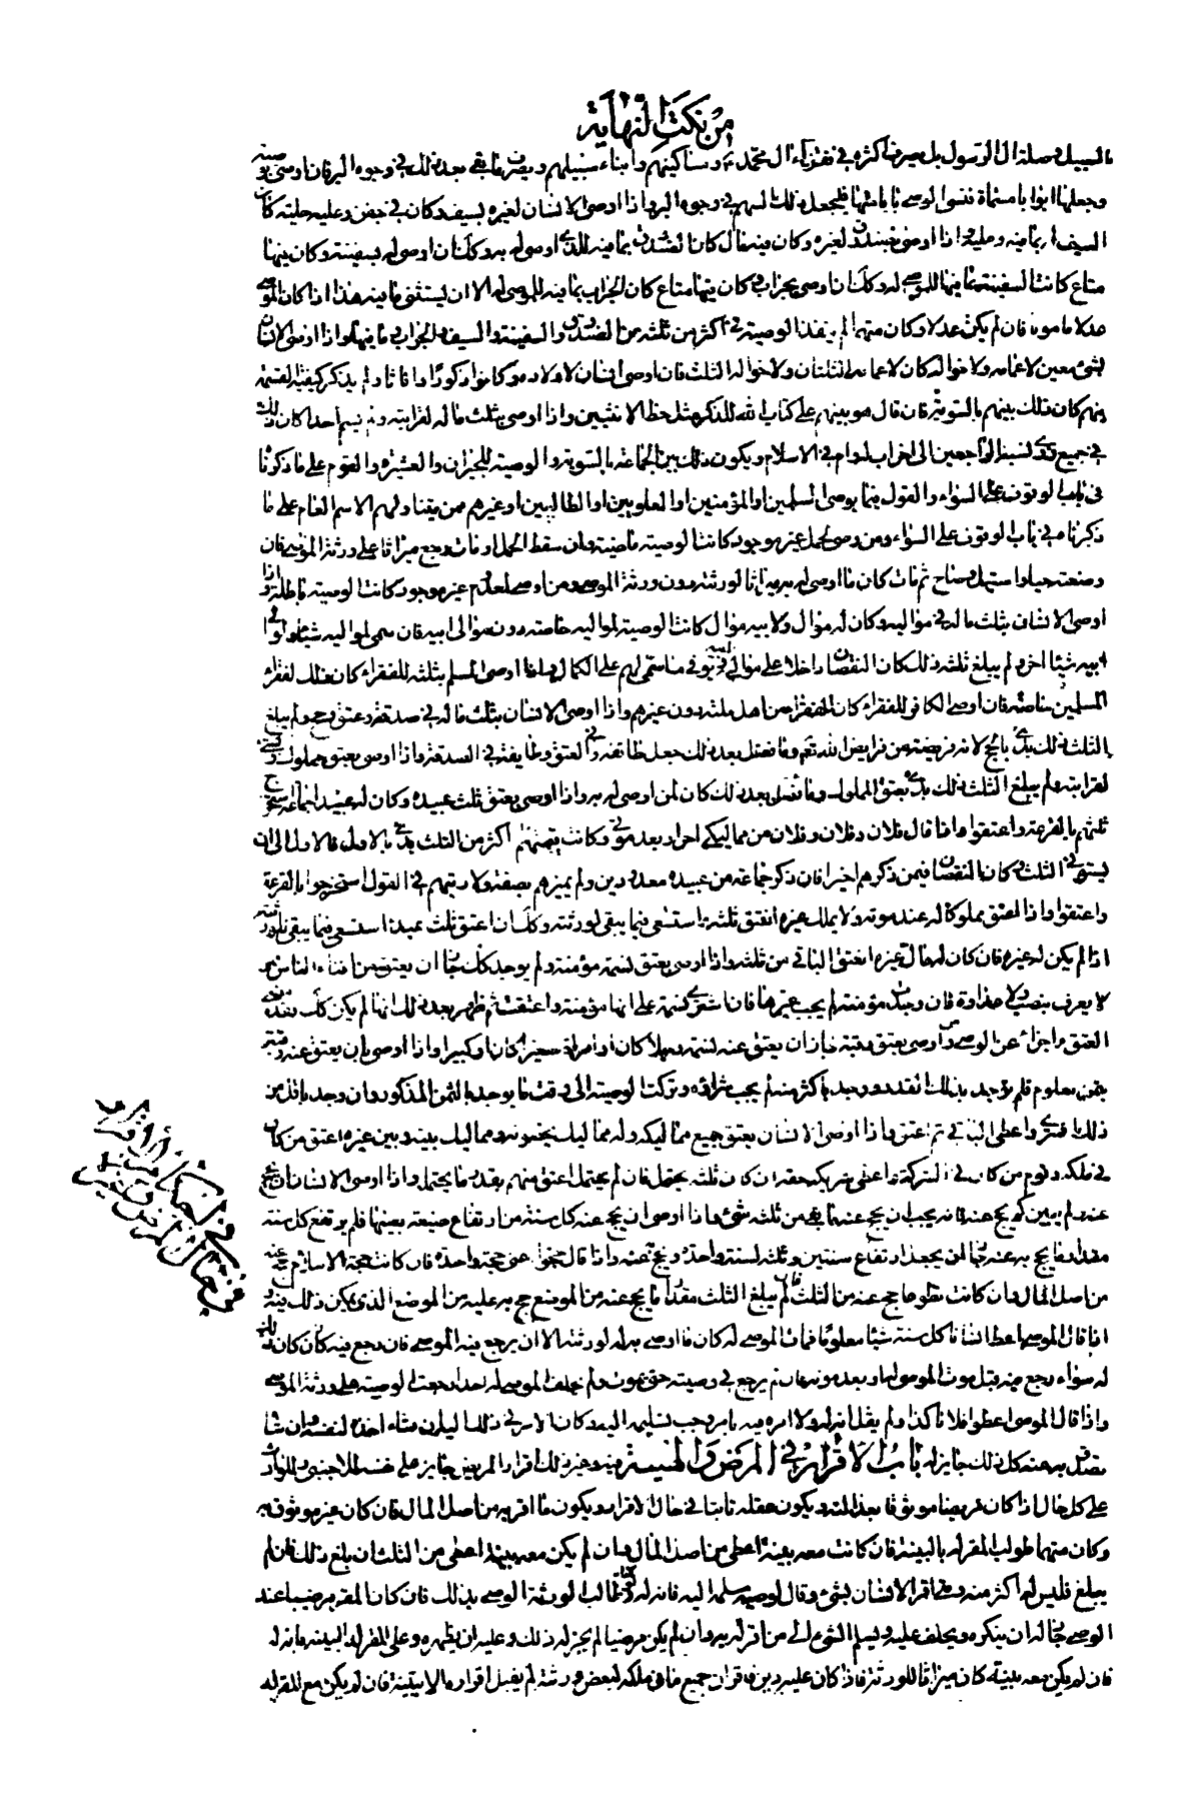 من نكت النهاية
السبيل وصلة ال الرسول بل يصرف اكثره في فقراء ال محمد ومساكينهم وابناء سبيلهم ويصرف ما بقي بعد ذلك في وجوه البر فان اوصى بوصية
وجعلها ابوابا مسماة فنسي الوصي بابا منها فليجعل ذلك السهم في وجوه البر واذا اوصى الانسان لغيره بسيف وكان في جفن وعليه حلية كان
السيف له بما فيه وعليه واذا اوصى بصندوق لغيره وكان فيه مال كان الصندوق بما فيه للذي اوصى له به وكذلك ان اوصى له بسفينة وكان فيها
متاع كانت السفينة بما فيها للموصى له وكذلك ان اوصى بجراب وكان فيها متاع كان الجراب بما فيه للموصى له الا ان يستثني ما فيه هذا اذا كان الموصي
عدلا مامونا فان لم يكن عدلا وكان متهما لم ينفذ الوصية في اكثر من ثلثه من الصندوق والسفينة والسيف والجراب بما فيها واذا اوصى الانسان
بشيء معين لاعمامه ولاخواله كان لاعمامه الثلثان ولاخواله الثلث فان اوصى انسان لاولاده وكانوا ذكورا واناثا ولم يذكر كيفية القسمة
بينهم كان ذلك بينهم بالسوية فان قال هو بينهم على كتاب الله للذكر مثل حظ الانثيين واذا اوصى بثلث ماله لقرابته ولم يسم احدا كان ذلك
في جميع ذوي نسبه الراجعين الى اخر اب له وام في الاسلام ويكون ذلك بين الجماعة بالسوية والوصية للجيران والعشيرة والقوم على ما ذكرنا
في باب الوقوف على السواء والقول فيما يوصى للمسلمين او المؤمنين او العلويين او الطالبيين او غيرهم ممن يتناولهم الاسم العام على ما
ذكرناه في باب الوقوف على السواء ومن وصى لحمل غير موجود كانت الوصية ماضية فان سقط الحمل او مات رجع ميراثا على ورثة الموصي فان
وضعته حيا واستهل وصاح ثم مات كان ما اوصى له به ميراثا لورثته دون ورثة الموصي ومن اوصى لمعدوم غير موجود كانت الوصية باطلة واذا
اوصى الانسان بثلث ماله في مواليه وكان له موال ولابيه موال كانت الوصية لمواليه خاصة دون موالى ابيه فان سمى لمواليه شيئا ولموالي
ابيه شيئا اخر ولم يبلغ ثلثه ذلك كان النقصان داخلا على موالي ابيه ويوفي ما سمى لهم على الكمال واذا اوصى المسلم بثلثه للفقراء كان ذلك لفقراء
المسلمين خاصة فان اوصى الكافر للفقراء كان الفقراء من اهل ملته دون غيرهم واذا اوصى الانسان بثلث ماله في صدقة وعتق وحج ولم يبلغ
الثلث ذلك بدئ بالحج لانه فريضة من فرايض الله تعالى وما فضل بعد ذلك جعل طائفة في العتق وطايفة في الصدقة واذا اوصى بعتق مملوك وبشيء
لقرابته ولم يبلغ الثلث ذلك بدئ بعتق المملوك وما فضل بعد ذلك كان لمن اوصى له به واذا اوصى بعتق ثلث عبيده وكان له عبيد جماعة استخرج
ثلثهم بالقرعة واعتقوا واذا قال فلان وفلان وفلان من مماليكي احرار بعد موتي وكانت قيمتهم اكثر من الثلث بدئ بالاول فالاول الى ان
يستوفي الثلث وكان النقصان فيمن ذكرهم اخيرا فان ذكر جماعة من عبيده معدودين ولم يميزهم بصفة ولا رتبهم في القول استخرجوا بالقرعة
واعتقوا واذا اعتق مملوكا له عند موته ولا يملك غيره انعتق ثلثه واستسعي فيما يبقى لورثته وكذلك ان اعتق ثلث عبده استسعي فيما يبقى لورثته
اذا لم يكن له غيره فان كان له مال غيره انعتق الباقي من ثلثه واذا اوصى بعتق نسمة مؤمنة ولم يوجد كذلك جاز ان يعتق من افناء الناس ممن
لا يعرف بنصب ولا عداوة فان وجدت مؤمنة لم يجب غيرها فان اشترى نسمة على انها مؤمنة واعتقت ثم ظهر بعد ذلك انها لم يكن كذلك فقد مضى
العتق واجزاء عن الوصي واذا اوصى بعتق رقبة جاز ان يعتق عنه نسمة رجلا كان او امراة صغيرا كان او كبيرا واذا اوصى بان يعتق عنه رقبة
بثمن معلوم فلم يوجد بذلك القدر ووجد باكثر منه لم يجب شراؤه وتركت الوصية الى وقت ما يوجد بالثمن المذكور وان وجد باقل من
ذلك اشتري واعطي الباقي ثم اعتق واذا اوصى الانسان بعتق جميع مماليكه وله مماليك يخصونه ومماليك بينه وبين غيره اعتق من كان
في ملكه وقوم من كان في الشركة واعطي شريكه حقه ان كان ثلثه يحتمل فان لم يحتمل اعتق منهم بقدر ما يحتمل واذا اوصى الانسان ان يحج
عنه ولم يبين كم يحج عنه فانه يجب ان يحج عنه ما بقي من ثلثه شيء واذا اوصى ان يحج عنه كل سنة من ارتفاع ضيعة بعينها فلم يرتفع كل سنة
مقدار ما يحج به عنه جاز ان يجعل ارتفاع سنتين وثلثة لسنة واحدة وحج عنه واذا قال حجوا عني حجة واحدة فان كانت حجة الاسلام حج عنه
من اصل المال وان كانت تطوعا حج عنه من الثلث فان لم يبلغ الثلث مقدار ما يحج عنه من الموضع حج به عليه من الموضع الذي يمكن ذلك فيه و
اذا قال الموصي اعطوا انسانا كل سنة شيئا معلوما فمات الموصى له كان ما اوصى به له لورثته الا ان يرجع فيه الموصي فان رجع فيه كان ذلك
له سواء رجع فيه قبل موت الموصى له او بعد موته فان لم يرجع في وصيته حتى يموت ولم يخلف الموصى له احدا رجعت الوصية على ورثة الموصي
واذا قال الموصي اعطوا فلانا كذا ولم يقل انه له ولا امره فيه بامر وجب تسليمه اليه وكان الامر في ذلك اليه ان شاء اخذه لنفسه وان شاء
تصدق به عنه كل ذلك جايز له باب الاقرار في المرض والهبة فيه وغير ذلك اقرار المريض جايز على نفسه للاجنبي وللوارث
على كل حال اذا كان مرضيا موثوقا بعدالته ويكون عقله ثابتا في حال الاقرار ويكون ما اقر به من اصل المال فان كان غير موثوق به
وكان متهما طولب المقر له بالبينة فان كانت معه بينة اعطي من اصل المال وان لم يكن معه بينة اعطي من الثلث ان بلغ ذلك فان لم
يبلغ فليس له اكثر منه ومتى اقر الانسان بشيء وقال لوصيه سلمه اليه فانه له وطالب الورثة الوصي بذلك فان كان المقر به مرضيا عند
الوصي جاز له ان ينكره ويحلف عليه ويسلم الشيء الى من اقر له به وان لم يكن مرضيا لم يجز له ذلك وعليه ان يظهره وعلى المقر له البينة بانه له
فان لم يكن معه بينة كان ميراثا للورثة فاذا كان عليه دين فاقر ان جميع ما في ملكه لبعض ورثته لم يقبل اقراره الا ببينة فان لم يكن مع المقر له